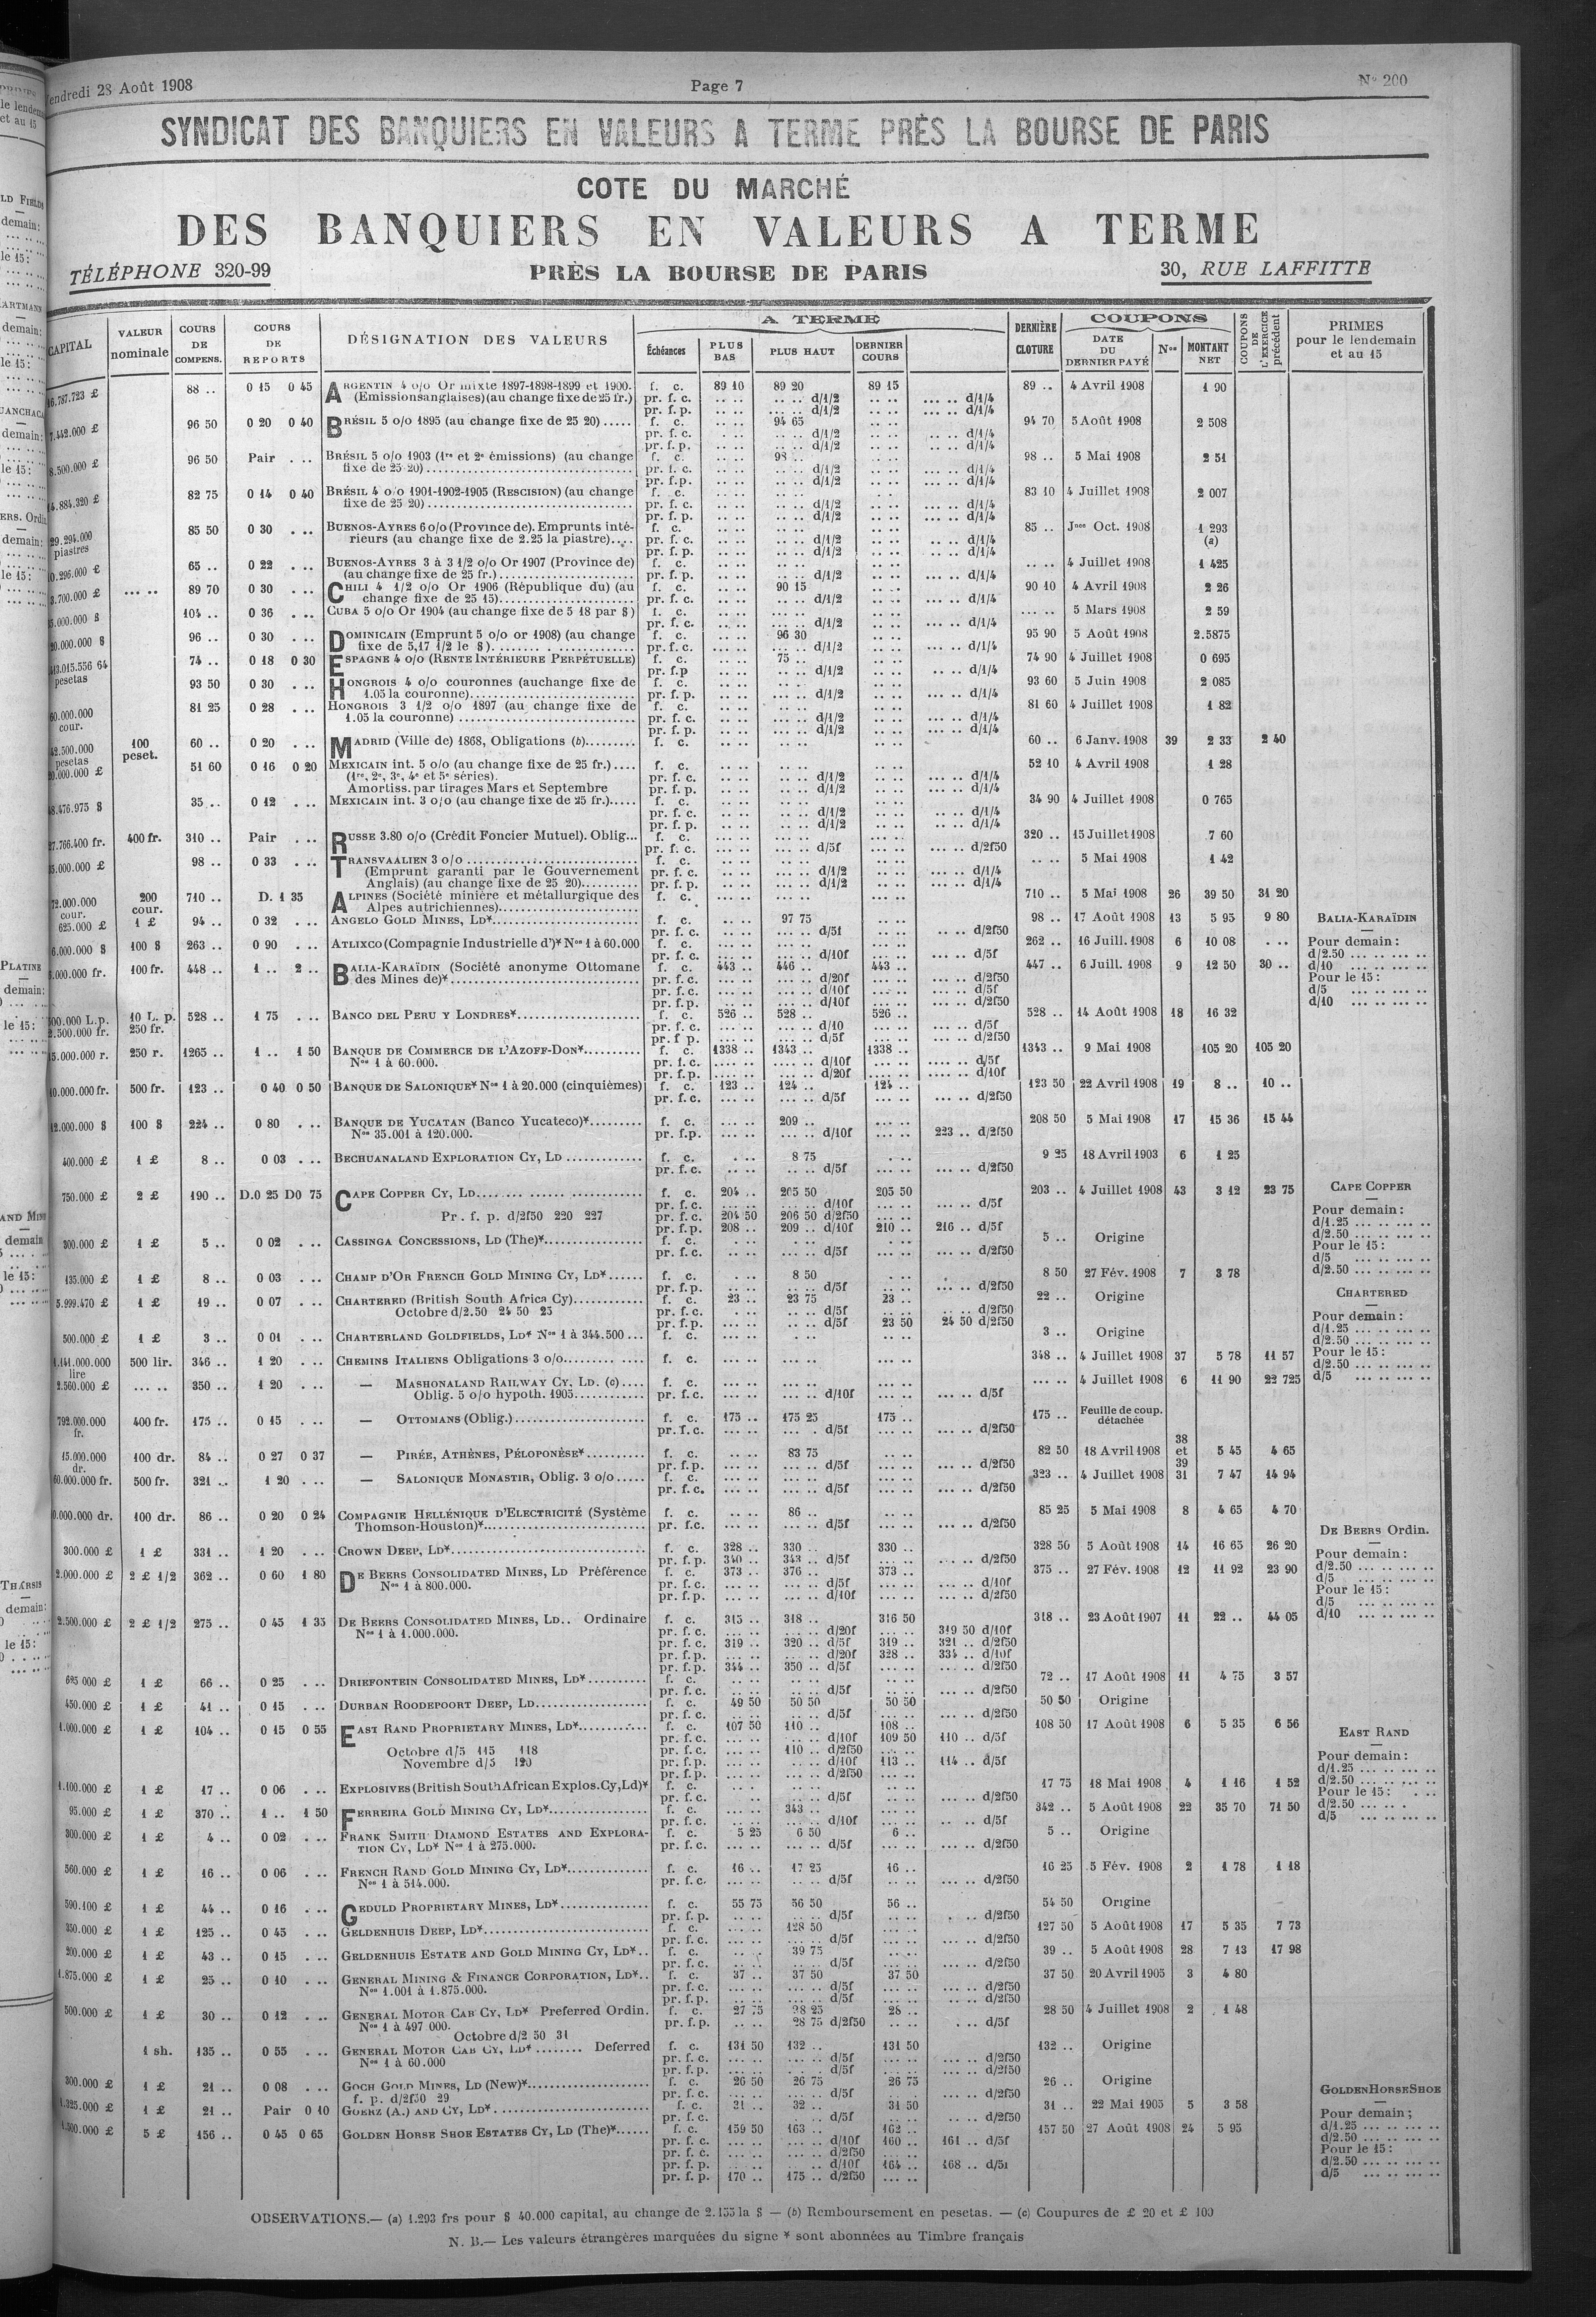 Vendredi 28 Août 1908 Page 7 N° 200
SYNDICAT DES BANQUIERS EN VALEURS A TERME PRÈS LA BOURSE DE PARIS
COTE DU MARCHÉ
DES BANQUIERS EN VALEURS A TERME
TÉLÉPHONE 320-99 PRÈS LA BOURSE DE PARIS 30, RUE LAFFITTE
CAPITAL VALEUR nominale COURS DE COMPENS. COURS DE REPORTS DÉSIGNATION DES VALEURS A TERME Échéances PLUS BAS PLUS HAUT DERNIER COURS DERNIÈRE CLOTURE COUPONS DATE DU DERNIER PAYÉ Nos MONTANT NET COUPONS DE L'EXERCICE précédent PRIMES pour le lendemain et au 15
88 .. 0 15 0 45 ARGENTIN 4 o/o Or mixte 1897-1898-1899 et 1900. f. c. 89 10 89 20 89 15 89 .. 4 Avril 1908 1 90
(Emissions anglaises) (au change fixe de 25 fr.) pr. f. c. d/1/2 d/1/4
pr. f. p. d/1/2 d/1/4
96 50 0 20 0 40 BRÉSIL 5 o/o 1895 (au change fixe de 25 20) ..... f. c. 94 65 94 70 5 Août 1908 2 508
pr. f. c. d/1/2 d/1/4
pr. f. p. d/1/2 d/1/4
96 50 Pair . .. BRÉSIL 5 o/o 1903 (1re et 2e émissions) (au change f. c. 98 .. 98 .. 5 Mai 1908 2 51
fixe de 25 20) pr. f. c. d/1/2 d/1/4
pr. f. p. d/1/2 d/1/4
82 75 0 14 0 40 BRÉSIL 4 o/o 1901-1902-1905 (RESCISION) (au change f. c. 83 10 4 Juillet 1908 2 007
fixe de 25 20) pr. f. c. d/1/2 d/1/4
pr. f. p. d/1/2 d/1/4
85 50 0 30 . .. BUENOS-AYRES 6 o/o (Province de). Emprunts inté- f. c. 85 .. Jnce Oct. 1908 1 293
piastres rieurs (au change fixe de 2.25 la piastre).... pr. f. c. d/1/2 d/1/4 (a)
pr. f. p. d/1/2 d/1/4
65 .. 0 22 . .. BUENOS-AYRES 3 à 3 1/2 o/o Or 1907 (Province de) f. c. 4 Juillet 1908 1 425
(au change fixe de 25 fr.) pr. f. p. d/1/2 d/1/4
89 70 0 30 . .. CHILI 4 1/2 o/o Or 1906 (République du) (au f. c. 90 15 90 10 4 Avril 1908 2 26
change fixe de 25 15) pr. f. c. d/1/2 d/1/4
104 .. 0 36 . .. CUBA 5 o/o Or 1904 (au change fixe de 5 18 par $) f. c. 5 Mars 1908 2 59
pr. f. c. d/1/2 d/1/4
96 .. 0 30 . .. DOMINICAIN (Emprunt 5 o/o or 1908) (au change f. c. 96 30 95 90 5 Août 1908 2.5875
fixe de 5,17 1/2 le $) pr. f. c. d/1/2 d/1/4
74 .. 0 18 0 30 ESPAGNE 4 o/o (RENTE INTÉRIEURE PERPÉTUELLE) f. c. 75 .. 74 90 4 Juillet 1908 0 695
pesetas pr. f. p d/1/2 d/1/4
93 50 0 30 . .. HONGROIS 4 o/o couronnes (au change fixe de f. c. 93 60 5 Juin 1908 2 085
1.05 la couronne) pr. f. p. d/1/2 d/1/4
60.000.000 cour. 81 25 0 28 . .. HONGROIS 3 1/2 o/o 1897 (au change fixe de f. c. 81 60 4 Juillet 1908 1 82
1.05 la couronne) pr. f. c. d/1/2 d/1/4
pr. f. p. d/1/2 d/1/4
pesetas 100 peset. 60 .. 0 20 . .. MADRID (Ville de) 1868, Obligations (b) f. c. 60 .. 6 Janv. 1908 39 2 33 2 40
51 60 0 16 0 20 MEXICAIN int. 5 o/o (au change fixe de 25 fr.) .... f. c. 52 10 4 Avril 1908 1 28
(1re, 2e, 3e, 4e et 5e séries). pr. f. c. d/1/2 d/1/4
Amortiss. par tirages Mars et Septembre pr. f. p. d/1/2 d/1/4
35 .. 0 12 . .. MEXICAIN int. 3 o/o (au change fixe de 25 fr.)..... f. c. 34 90 4 Juillet 1908 0 765
pr. f. c. d/1/2 d/1/4
pr. f. p. d/1/2 d/1/4
400 fr. 310 .. Pair . .. RUSSE 3.80 o/o (Crédit Foncier Mutuel). Oblig... f. c. 320 .. 15 Juillet 1908 7 60
pr. f. c. d/5f d/2f50
98 .. 0 33 . .. TRANSVAALIEN 3 o/o f. c. 5 Mai 1908 1 42
(Emprunt garanti par le Gouvernement pr. f. c. d/1/2 d/1/4
Anglais) (au change fixe de 25 20) pr. f. p. d/1/2 d/1/4
cour. 200 cour. 710 .. D. 1 35 ALPINES (Société minière et métallurgique des f. c. 710 .. 5 Mai 1908 26 39 50 31 20
Alpes autrichiennes)
625.000 £ 1 £ 94 .. 0 32 . .. ANGELO GOLD MINES, LD* f. c. 97 75 98 .. 17 Août 1908 13 5 95 9 80 BALIA-KARAÏDIN
pr. f. c. d/5f d/2f50
100 $ 263 .. 0 90 . .. ATLIXCO (Compagnie Industrielle d')* Nos 1 à 60.000 f. c. 262 .. 16 Juill. 1908 6 10 08 Pour demain :
pr. f. c. d/10f d/5f d/2.50
100 fr. 448 .. 1 .. 2 .. BALIA-KARAÏDIN (Société anonyme Ottomane f. c. 443 .. 446 .. 443 .. 447 .. 6 Juill. 1908 9 12 50 30 .. d/10
des Mines de)* pr. f. c. d/20f d/2f50 Pour le 15 :
pr. f. c. d/10f d/5f d/5
pr. f. p. d/10f d/2f50 d/10
10 L. p. 250 fr. 528 .. 1 75 . .. BANCO DEL PERU Y LONDRES* f. c. 526 .. 528 .. 526 .. 528 .. 14 Août 1908 18 16 32
pr. f. c. d/10 d/5f
pr. f p. d/5f d/2f50
250 r. 1265 .. 1 .. 1 50 BANQUE DE COMMERCE DE L'AZOFF-DON* f. c. 1338 .. 1343 .. 1338 .. 1343 .. 9 Mai 1908 105 20 105 20
Nos 1 à 60.000. pr. f. c. d/10f d/5f
pr. f. p. d/20f d/10f
500 fr. 123 .. 0 40 0 50 BANQUE DE SALONIQUE* Nos 1 à 20.000 (cinquièmes) f. c. 123 .. 124 .. 124 .. 123 50 22 Avril 1908 19 8 .. 10 ..
pr. f. c. d/5f d/2f50
100 $ 224 .. 0 80 . .. BANQUE DE YUCATAN (Banco Yucateco)* f. c. 209 .. 208 50 5 Mai 1908 17 15 36 15 44
Nos 35.001 à 120.000. pr. f. p. d/10f 223 .. d/2f50
400.000 £ 1 £ 8 .. 0 03 . .. BECHUANALAND EXPLORATION CY, LD f. c. 8 75 9 25 18 Avril 1903 6 1 25
pr. f. c. d/5f d/2f50
750.000 £ 2 £ 190 .. D.0 25 D0 75 CAPE COPPER CY, LD f. c. 204 .. 205 50 205 50 203 .. 4 Juillet 1908 43 3 12 23 75 CAPE COPPER
pr. f. c. d/10f d/5f
Pr. f. p. d/2f50 220 227 pr. f. c. 204 50 206 50 d/2f50 Pour demain :
pr. f. p. 208 .. 209 .. d/10f 210 .. 216 .. d/5f d/1.25
300.000 £ 1 £ 5 .. 0 02 . .. CASSINGA CONCESSIONS, LD (The)* f. c. 5 .. Origine d/2.50
pr. f. c. d/5f d/2f50 Pour le 15 :
d/5
135.000 £ 1 £ 8 .. 0 03 . .. CHAMP D'OR FRENCH GOLD MINING CY, LD* f. c. 8 50 8 50 27 Fév. 1908 7 3 78 d/2.50
pr. f. p. d/5f d/2f50
5.999.470 £ 1 £ 19 .. 0 07 . .. CHARTERED (British South Africa Cy) f. c. 23 .. 23 75 23 .. 22 .. Origine CHARTERED
Octobre d/2.50 24 50 25 pr. f. c. d/5f d/2f50
pr. f. p. d/5f 23 50 24 50 d/2f50 Pour demain :
500.000 £ 1 £ 3 .. 0 01 . .. CHARTERLAND GOLDFIELDS, LD* Nos 1 à 344.500 ... f. c. 3 .. Origine d/1.25
d/2.50
500 lir. 346 .. 1 20 . .. CHEMINS ITALIENS Obligations 3 o/o f. c. 348 .. 4 Juillet 1908 37 5 78 11 57 Pour le 15 :
lire d/2.50
2.560.000 £ 350 .. 1 20 . .. — MASHONALAND RAILWAY CY, LD. (c) f. c. 4 Juillet 1908 6 11 90 22 725 d/5
Oblig. 5 o/o hypoth. 1905 pr. f. c. d/10f d/5f
792.000.000 fr. 400 fr. 175 .. 0 15 . .. — OTTOMANS (Oblig.) f. c. 175 .. 175 25 175 .. 175 .. Feuille de coup. détachée
pr. f. c. d/5f d/2f50
15.000.000 dr. 100 dr. 84 .. 0 27 0 37 — PIRÉE, ATHÈNES, PÉLOPONÈSE* f. c. 83 75 82 50 18 Avril 1908 38 et 39 5 45 4 65
pr. f. p. d/5f d/2f50
60.000.000 fr. 500 fr. 321 .. 1 20 . .. — SALONIQUE MONASTIR, Oblig. 3 o/o f. c. 323 .. 4 Juillet 1908 31 7 47 14 94
pr. f. c. d/5f d/2f50
100 dr. 86 .. 0 20 0 24 COMPAGNIE HELLÉNIQUE D'ELECTRICITÉ (Système f. c. 86 .. 85 25 5 Mai 1908 8 4 65 4 70
Thomson-Houston)* pr. f.c. d/5f d/2f50 DE BEERS Ordin.
300.000 £ 1 £ 331 .. 1 20 . .. CROWN DEEP, LD* f. c. 328 .. 330 .. 330 .. 328 50 5 Août 1908 14 16 65 26 20
pr. f. p. 340 .. 343 .. d/5f d/2f50 Pour demain :
2.000.000 £ 2 £ 1/2 362 .. 0 60 1 80 DE BEERS CONSOLIDATED MINES, LD Préférence f. c. 373 .. 376 .. 373 .. 375 .. 27 Fév. 1908 12 11 92 23 90 d/2.50
Nos 1 à 800.000. pr. f. c. d/5f d/10f d/5
pr. f. p. d/10f d/2f50 Pour le 15 :
d/5
2.500.000 £ 2 £ 1/2 275 .. 0 45 1 35 DE BEERS CONSOLIDATED MINES, LD.. Ordinaire f. c. 315 .. 318 .. 316 50 318 .. 23 Août 1907 11 22 .. 44 05 d/10
Nos 1 à 1.000.000. pr. f. c. d/20f 319 50 d/10f
pr. f. c. 319 .. 320 .. d/5f 319 .. 321 .. d/2f50
pr. f. p. d/20f 328 .. 334 .. d/10f
pr. f. p. 344 .. 350 .. d/5f d/2f50
625 000 £ 1 £ 66 .. 0 25 . .. DRIEFONTEIN CONSOLIDATED MINES, LD* f. c. 72 .. 17 Août 1908 11 4 75 3 57
pr. f. c. d/5f d/2f50
450.000 £ 1 £ 41 .. 0 15 . .. DURBAN ROODEPOORT DEEP, LD f. c. 49 50 50 50 50 50 50 50 Origine
pr. f. c. d/5f d/2f50
1.000.000 £ 1 £ 104 .. 0 15 0 55 EAST RAND PROPRIETARY MINES, LD* f. c. 107 50 110 .. 108 .. 108 50 17 Août 1908 6 5 35 6 56 EAST RAND
pr. f. c. d/10f 109 50 110 .. d/5f
Octobre d/5 115 118 pr. f. c. 110 .. d/2f50 Pour demain :
Novembre d/5 120 pr. f. p. d/10f 113 .. 114 .. d/5f d/1.25
pr. f. p. d/2f50
1.100.000 £ 1 £ 17 .. 0 06 . .. EXPLOSIVES (British South African Explos. Cy, Ld)* f. c. 17 75 18 Mai 1908 4 1 16 1 52 d/2.50
pr. f. c. d/5f d/2f50 Pour le 15 :
95.000 £ 1 £ 370 .. 1 .. 1 50 FERREIRA GOLD MINING CY, LD* f. c. 343 .. 342 .. 5 Août 1908 22 35 70 71 50 d/2.50
pr. f. c. d/10f d/5f d/5
300.000 £ 1 £ 4 .. 0 02 . .. FRANK SMITH DIAMOND ESTATES AND EXPLORA- f. c. 5 25 6 50 6 .. 5 .. Origine
TION CY, LD* Nos 1 à 275.000. pr. f. c. d/5f d/2f50
560.000 £ 1 £ 16 .. 0 06 . .. FRENCH RAND GOLD MINING CY, LD* f. c. 16 .. 17 25 16 .. 16 25 5 Fév. 1908 2 1 78 1 18
Nos 1 à 514.000. pr. f. c. d/5f d/2f50
590.100 £ 1 £ 44 .. 0 16 . .. GEDULD PROPRIETARY MINES, LD* f. c. 55 75 56 50 56 .. 54 50 Origine
pr. f. p. d/5f d/2f50
350.000 £ 1 £ 125 .. 0 45 . .. GELDENHUIS DEEP, LD* f. c. 128 50 127 50 5 Août 1908 17 5 35 7 73
pr. f. c. d/5f d/2f50
200.000 £ 1 £ 43 .. 0 15 . .. GELDENHUIS ESTATE AND GOLD MINING CY, LD* f. c. 39 75 39 .. 5 Août 1908 28 7 13 17 98
pr. f. c. d/5f d/2f50
1.875.000 £ 1 £ 25 .. 0 10 . .. GENERAL MINING & FINANCE CORPORATION, LD* f. c. 37 .. 37 50 37 50 37 50 20 Avril 1905 3 4 80
Nos 1.001 à 1.875.000. pr. f. c. d/5f d/2f50
pr. f. p. d/5f d/2f50
500.000 £ 1 £ 30 .. 0 12 . .. GENERAL MOTOR CAB CY, LD* Preferred Ordin. f. c. 27 75 28 25 28 .. 28 50 4 Juillet 1908 2 1 48
Nos 1 à 497 000. pr. f. p. 28 75 d/2f50 d/5f
Octobre d/2 50 31
1 sh. 135 .. 0 55 . .. GENERAL MOTOR CAB CY, LD* ........ Deferred f. c. 131 50 132 .. 131 50 132 .. Origine
Nos 1 à 60.000 pr. f. c. d/5f d/2f50
pr. f. p. d/5f d/2f50
300.000 £ 1 £ 21 .. 0 08 . .. GOCH GOLD MINES, LD (New)* f. c. 26 50 26 75 26 75 26 .. Origine
f. p. d/2f50 29 pr. f. c. d/5f d/2f50 GOLDEN HORSE SHOE
1 £ 21 .. Pair 0 10 GOERZ (A.) AND CY, LD* f. c. 31 .. 32 .. 31 50 31 .. 22 Mai 1905 5 3 58
pr. f. c. d/5f d/2f50 Pour demain ;
5 £ 156 .. 0 45 0 65 GOLDEN HORSE SHOE ESTATES CY, LD (The)* f. c. 159 50 163 .. 162 .. 157 50 27 Août 1908 24 5 95 d/1.25
pr. f. c. d/10f 160 .. 161 .. d/5f d/2.50
pr. f. c. d/2f50 Pour le 15 :
pr. f. p. d/10f 164 .. 168 .. d/5f d/2.50
pr. f. p. 170 .. 175 .. d/2f50 d/5
OBSERVATIONS.— (a) 1.293 frs pour $ 40.000 capital, au change de 2.155 la $ — (b) Remboursement en pesetas. — (c) Coupures de £ 20 et £ 100
N. B.— Les valeurs étrangères marquées du signe * sont abonnées au Timbre français